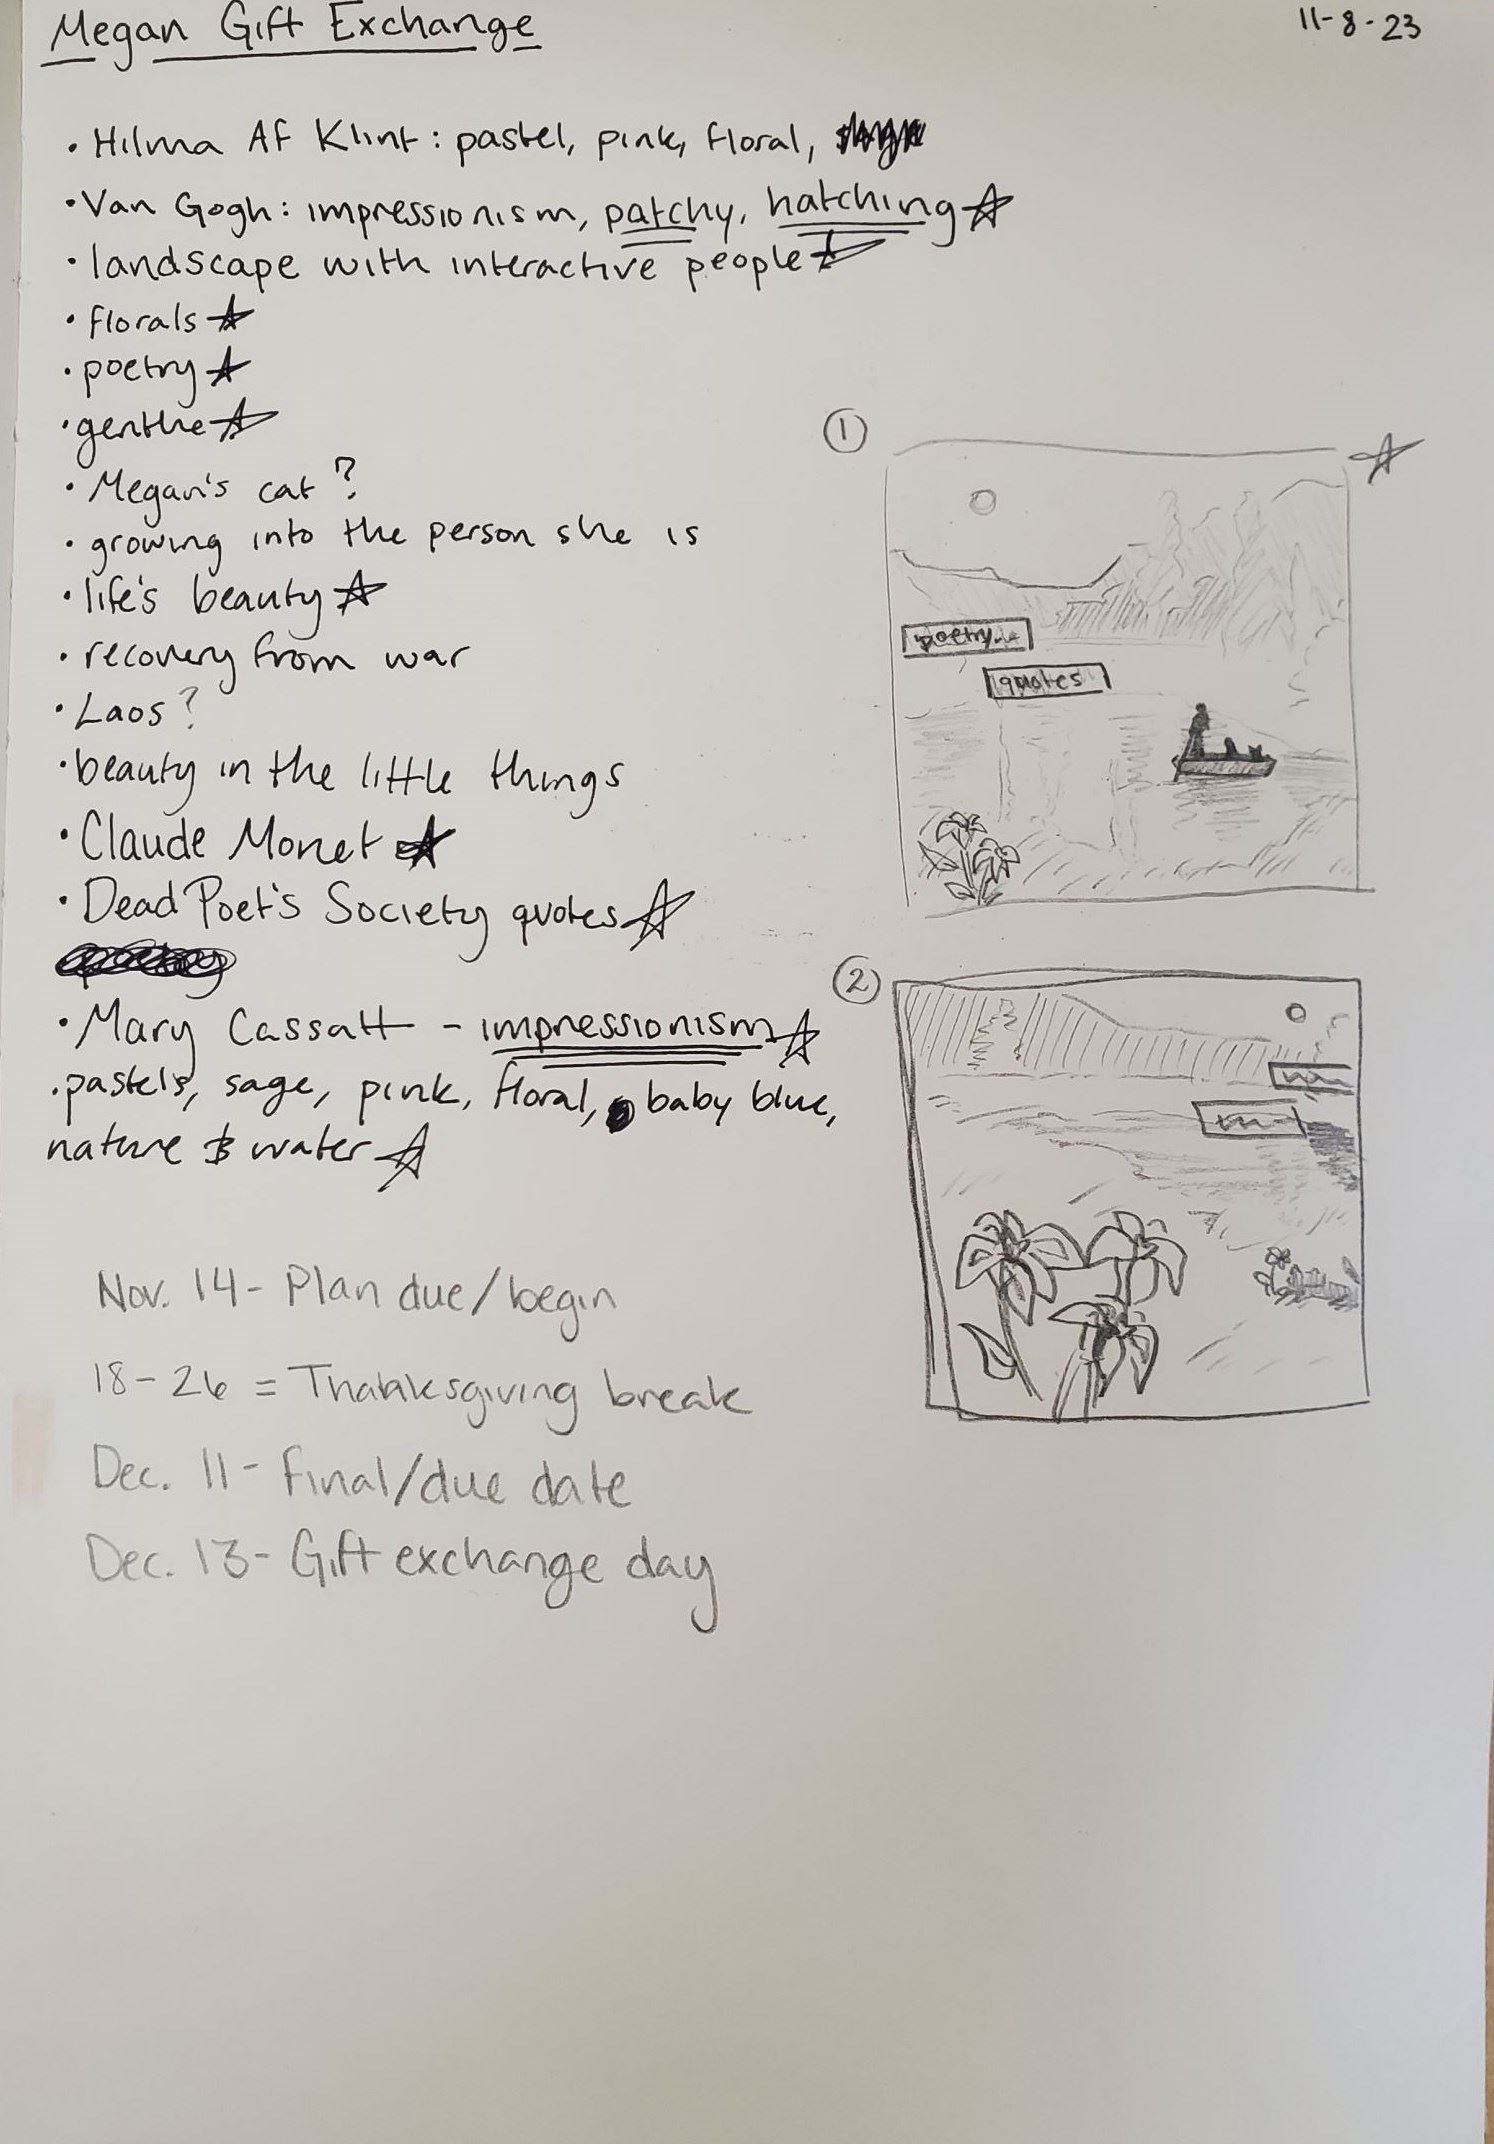 Megan Gift Exchange
11-8-23
• Hilma Af Klint: pastel, pink, floral,
• Van Gogh: impressionism, patchy, hatching
• landscape with interactive people
• florals
• poetry
• genthe
• Megan's cat?
• growing into the person she is
• life's beauty
• recovery from war
• Laos?
• beauty in the little things
• Claude Monet
• Dead Poet's Society quotes
• Mary Cassatt - impressionism
• pastels, sage, pink, floral, baby blue,
nature & water
Nov. 14- Plan due/begin
18-26 = Thanksgiving break
Dec. 11- final/due date
Dec. 13- Gift exchange day
1
poetry
quotes
2